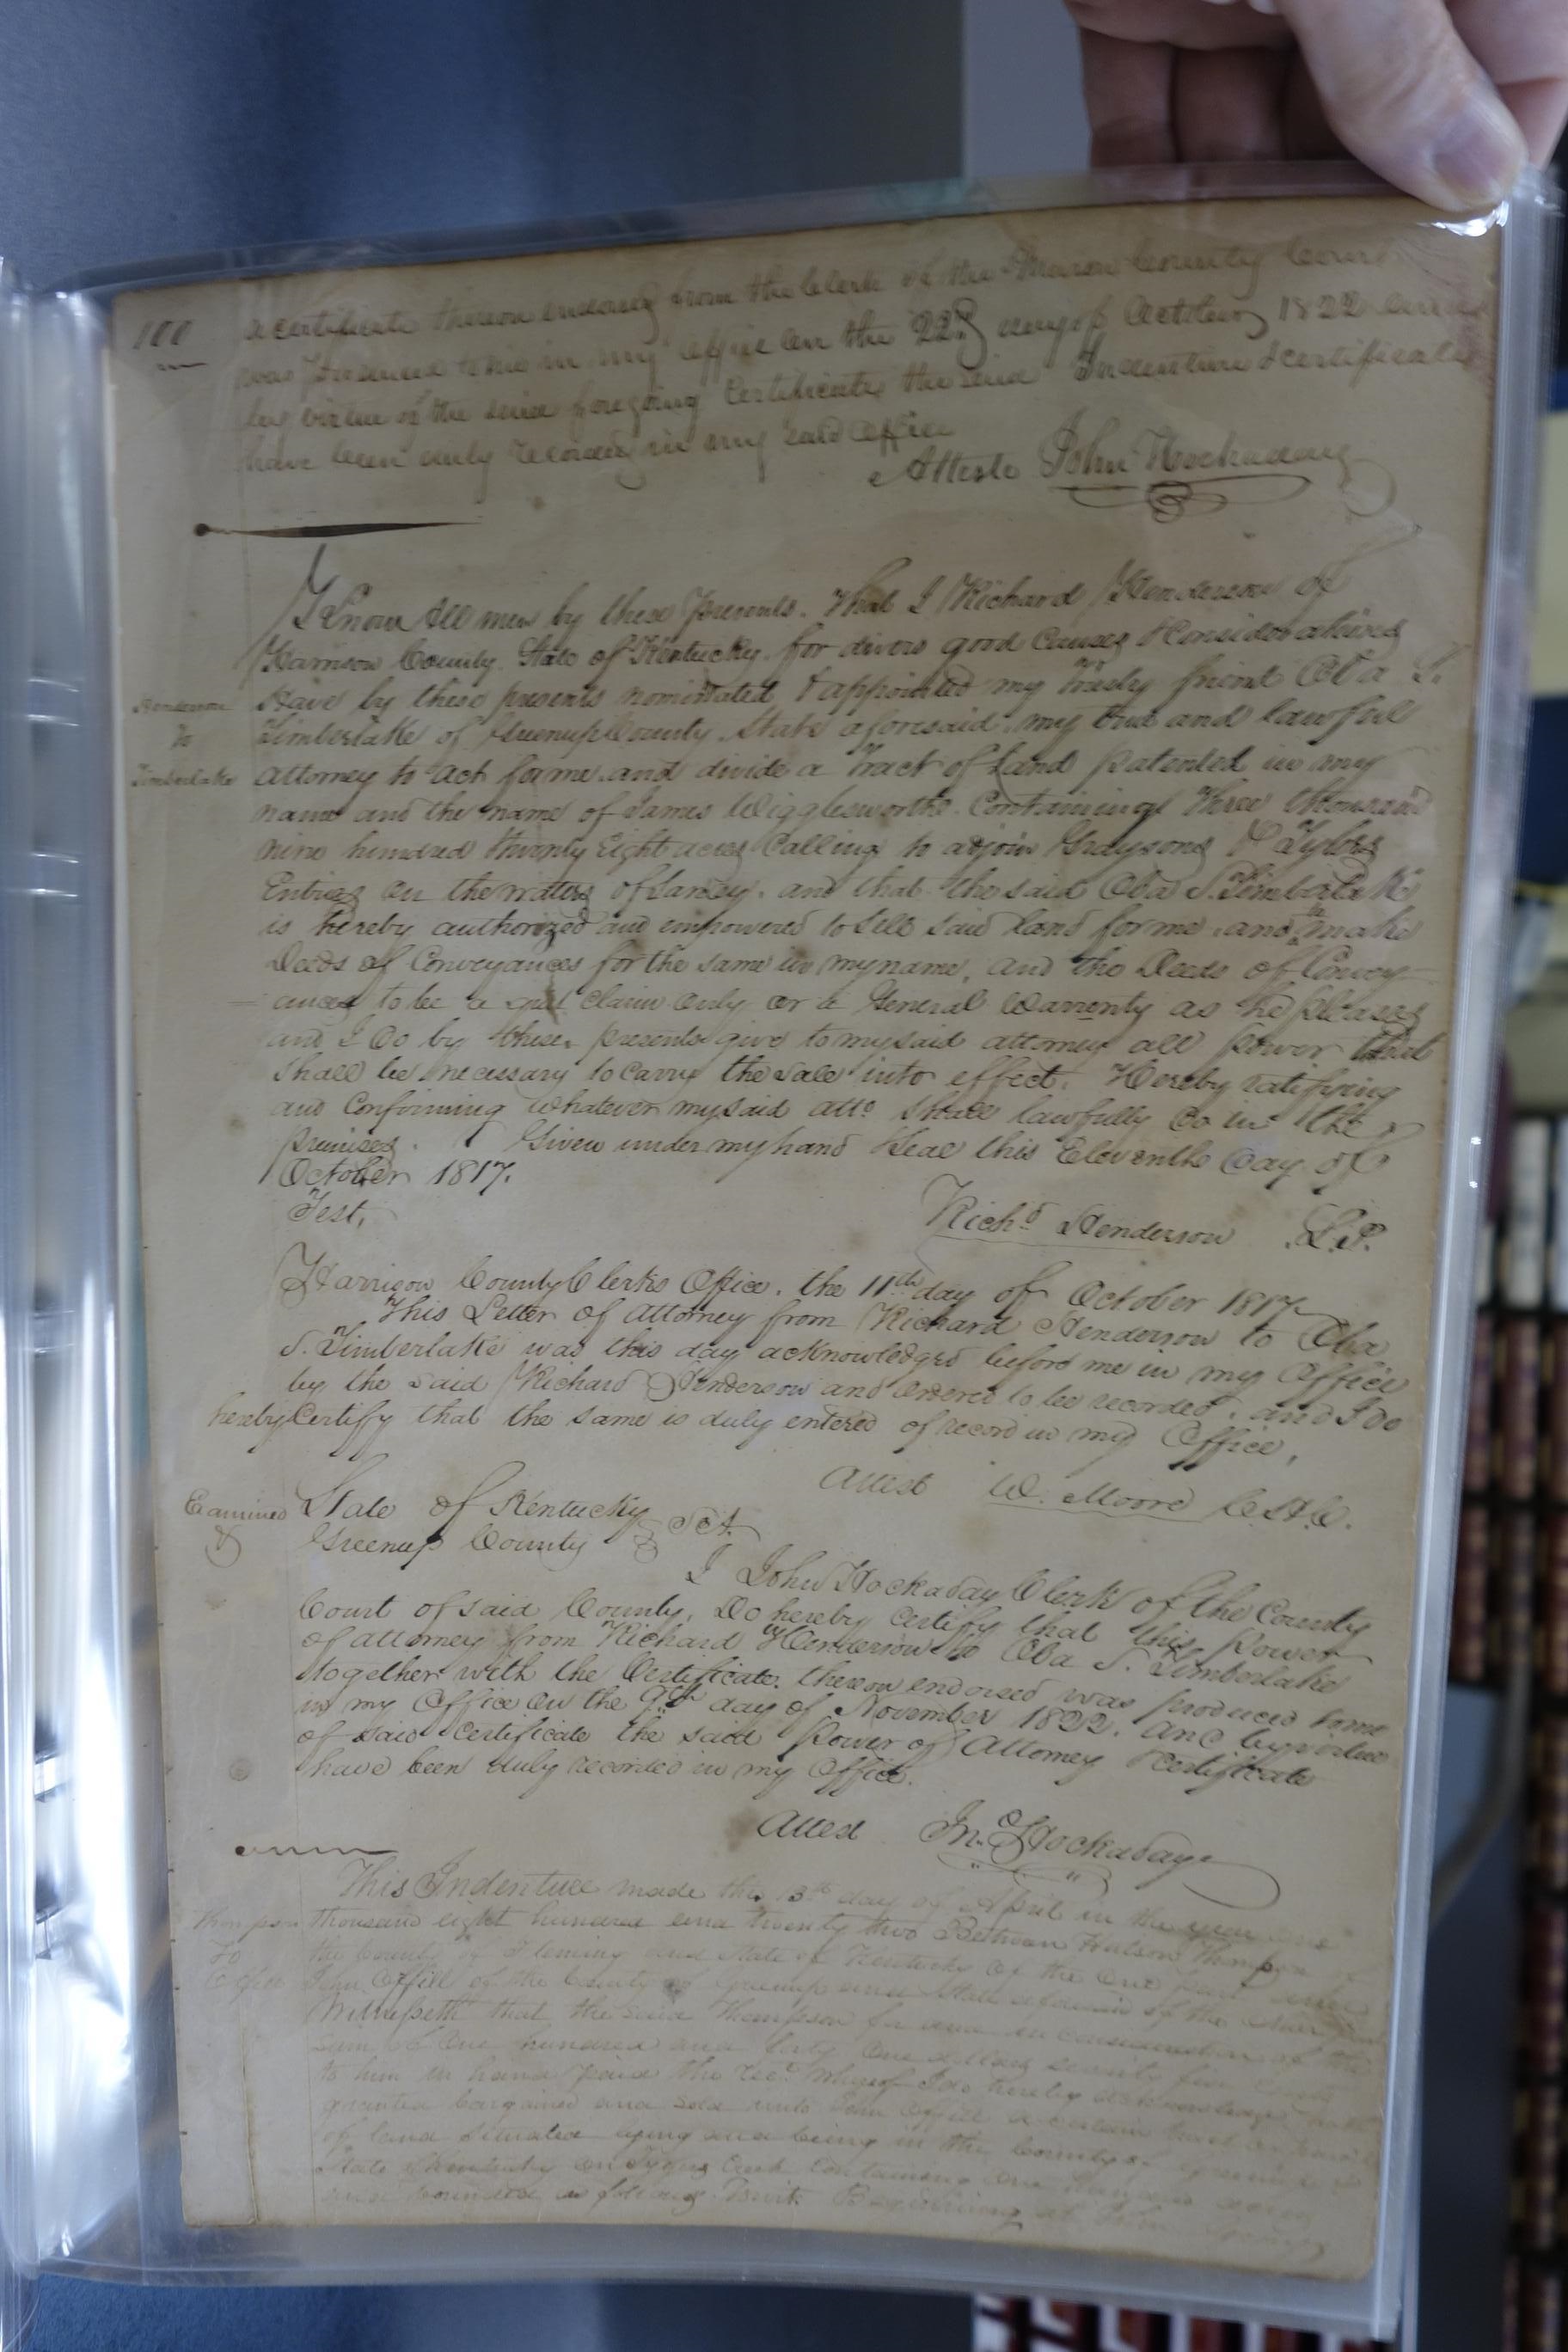 100
a certificate thereon endorsed from the Clerk of the Mason County Court
was produced to me in my office on the 22d day of October 1822 and
by virtue of the said foregoing Certificates the said Indenture & certificate
have been duly recorded in my said office
Atteste John Hockaday
Know All men by these Presents. That I Richard Henderson of
Harrison County. State of Kentucky. for divers good Causes & Considerations
Have by these presents nominated & appointed my trusty friend Oba S.
Henderson
to
Timberlake
Timberlake of Greenup County. State aforesaid. my true and lawful
attorney to act for me. and divide a Tract of Land patented in my
name and the name of James Wigglesworth. Containing Three thousand
nine hundred twenty Eight acres Calling to adjoin Graysons & Tylers
Entries on the waters of Sandy. and that the said Oba S. Timberlake
is hereby authorized and empowered to sell said land for me. and to make
Deeds of Conveyances for the same in my name. and the Deeds of Convey-
ances to be a quit Claim only or a General Warrenty as he pleases
and I Do by these. presents give to my said attorney all power that
Shall be necessary to carry the sale into effect. Hereby ratifying
and Conforming Whatever my said atto. shall lawfully Do in the
premises. Given under my hand & seal this Eleventh Day of
October 1817.
Test,
Richd Henderson L.S.
Harrison County Clerks Office. the 11th day of October 1817
This Letter of attorney from Richard Henderson to Oba
S. Timberlake was this day acknowledged before me in my Office
by the said Richard Henderson and ordered to be recorded. and I Do
hereby Certify that the same is duly entered of record in my Office,
Attest W. Moore C.H.C.
Examined
State of Kentucky
Greenup County Sct.
I John Hockaday Clerk of the County
Court of said County, Do hereby Certify that this Power
of attorney from Richard Henderson to Oba S. Timberlake
together with the Certificate. thereon endorsed was produced to me
in my Office on the 9th day of November 1822. and by virtue
of said Certificate the said Power of Attorney & certificate
have been duly recorded in my Office.
Attest Jno. Hockaday
This Indenture made the 13th day of April in the year one
Thompson
To
thousand eight hundred and twenty two Between Hutson Thompson of
the County of Fleming and State of Kentucky of the One part and
John Offill of the County of Greenup and State aforesaid of the other part
Witnesseth that the said Thompson for and in consideration of the
sum of One hundred and forty One dollars seventy five Cents
to him in hand paid the rect. whereof I do hereby acknowledge hath
granted bargained and sold unto John Offill a certain tract or parcel
of land Situated lying and being in the County of Greenup &
State of Kentucky on Tygers Creek containing one hundred acres
and bounded as follows Towit. Beginning at